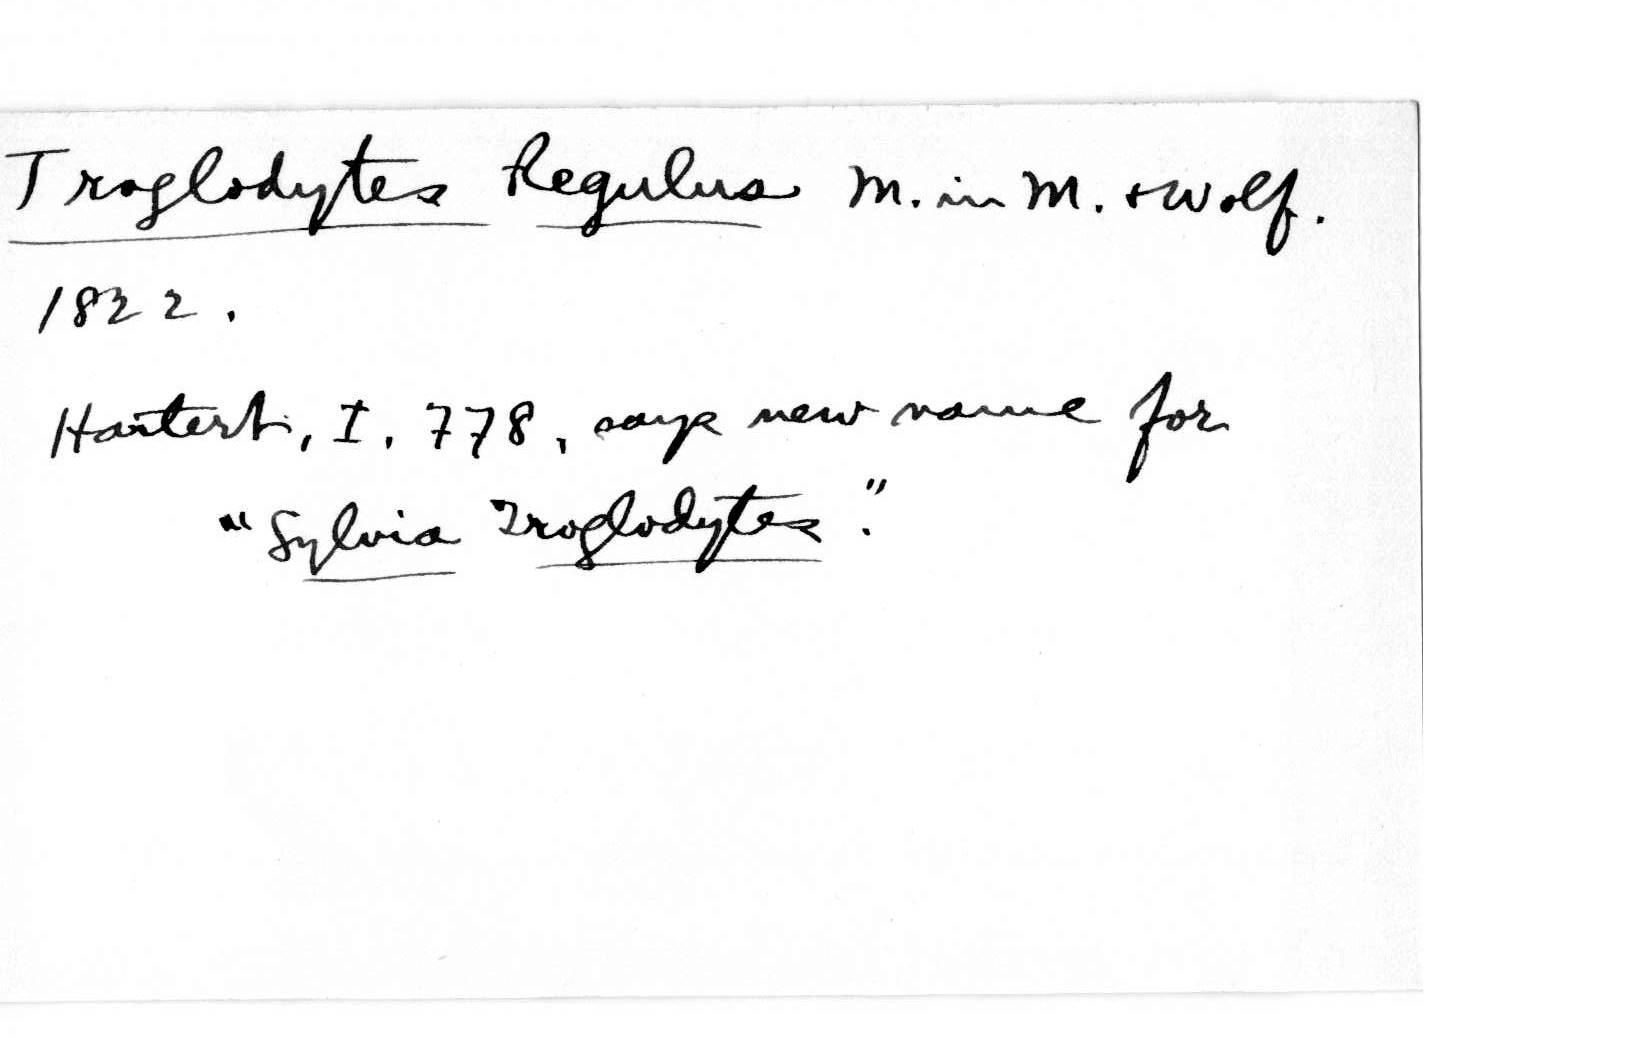 Troglodytes Regulus M. in M. + Wolf.
1822.
Hartert, I. 778, says new name for
"Sylvia Troglodytes."